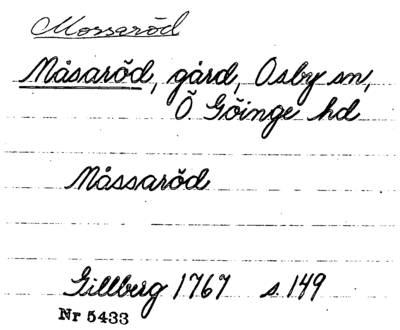 Mossaröd
Måsaröd, gård, Osby sn,
Ö Göinge hd
Måssaröd
Gillberg 1767 s. 149
Nr 5433